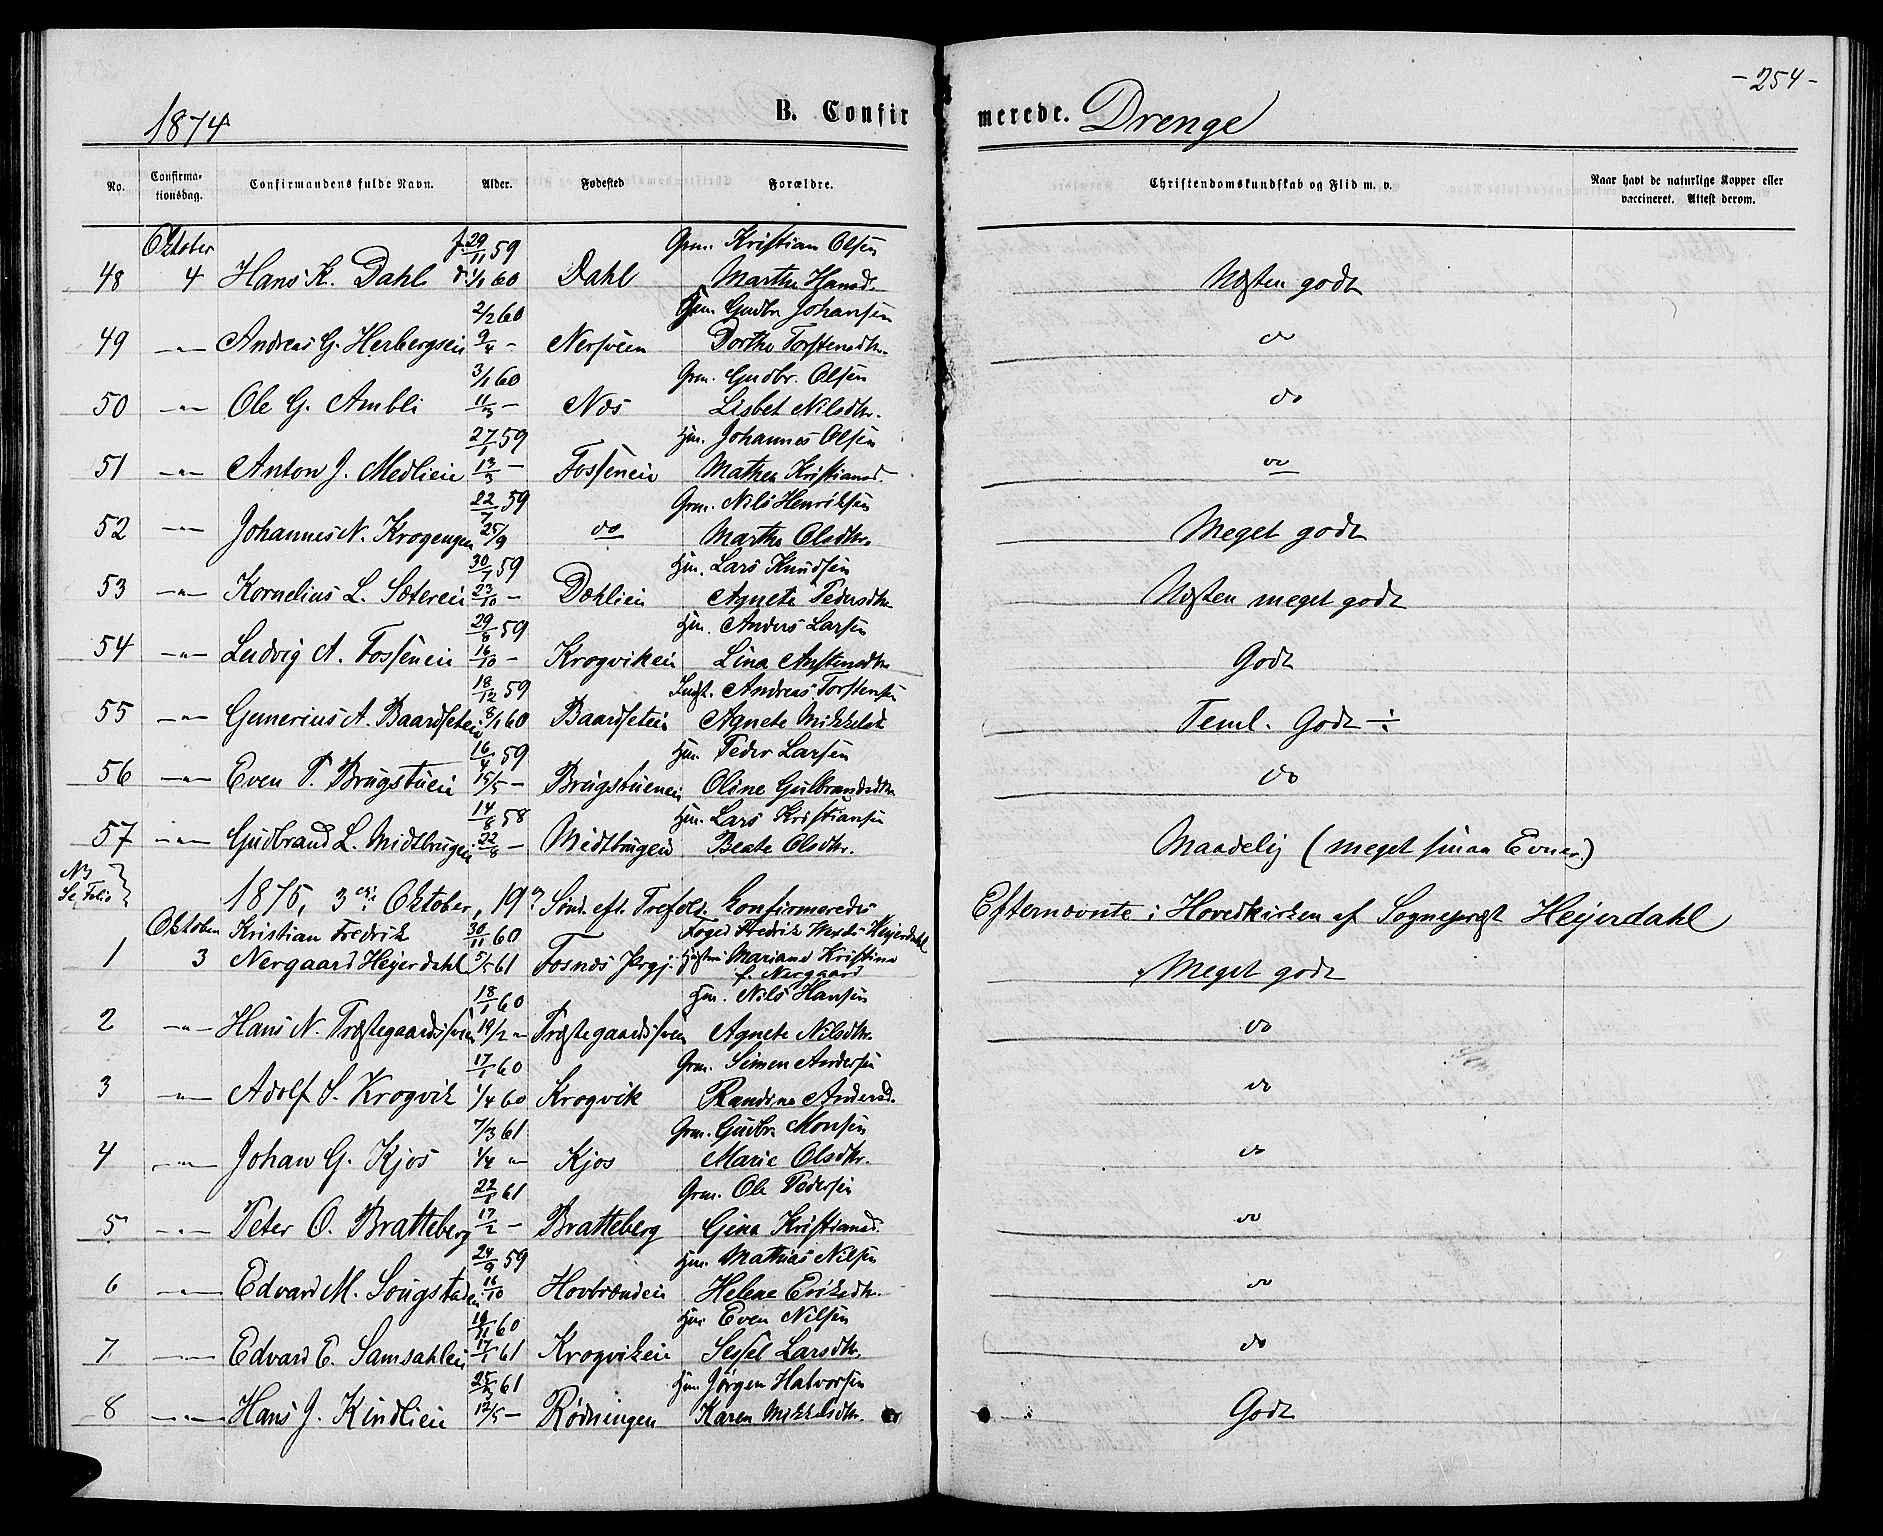 - 254 -
1874 B. Confirmerede. Drenge
No. Confirmationsdag. Confirmandens fulde Navn. Alder. Fødested Forældre. Christendomskundskab og Flid m. v. Naar havt de naturlige Kopper eller vaccineret. Attest derom.
Oktober f. 29/11 59 Grm. Kristian Olsen
48 4 Hans K. Dahl d. 1/1 60 Dahl Marthe Hansd. Næsten godt
2/2 60 Gudbr Johansen
49 -"- Andreas G. Herbergseie 9/4 - Nersveen Dorthe Torstensdtr. do
3/1 60 Grm. Gudbr. Olsen
50 -"- Ole G. Ambli 11/3 - Næs Lisbet Nilsdtr. do
27/1 59 Hm. Johannes Olsen
51 -"- Anton J. Medlien 13/3 - Fosseneie Mathea Kristiansd. do
22/7 59 Grm. Nils Henriksen
52 -"- Johannes N. Krogengen 25/9 do Marthe Olsdtr. Meget godt
30/7 59 Hm. Lars Knudsen
53 -"- Kornelius L. Sætereie 23/10 - Dæhlien Agnete Pedersdtr Næsten meget godt
29/8 59 Hm. Anders Larsen
54 -"- Ludvig A. Fosseneie 16/10 - Krogvikeie Lina Austensdtr Godt
18/12 59 Indst. Andreas Torstensen
55 -"- Gunerius A. Baardseteie 8/1 60 Baardseteie Agnete Mikkelsd Teml. Godt ÷
16/4 59 Hm. Peder Larsen
56 -"- Even P. Brugstueie 15/5 - Brugstueneie Oline Gulbrandsdtr do
14/8 58 Hm. Lars Kristiansen
57 -"- Gudbrand L. Midtbrugen 22/8 - Midtbrugen Beate Olsdtr. Maadelig (meget smaa Evner)
1875, 3die Oktober, 19de Sönd. eft. Trefold. Konfirmeredes Efternævnte i Hovedkirken af Sogneprest Heyerdahl
Oktober Kristian Fredrik 30/11 60 Foged Fredrik Heyerdahl
1 3 Nergaard Heyerdahl 5/5 61 Fosnæs Prgj. Hustru Mariane Kristine Meget godt
f. Nergaard
18/1 60 Hm. Nils Hansen
2 -"- Hans N. Præstegaardsveen 19/2 " Præstegaardsveen Agnete Nilsdtr. do
17/1 60 Grm. Simen Andersen
3 -"- Adolf S. Krogvik 1/4 60 Krogvik Randine Andersd. do
7/3 61 Grm. Gudbr. Monsen
4 -"- Johan G. Kjos 1/4 " Kjos Marie Olsdtr. do
22/1 61 Grm. Ole Pedersen
5 -"- Peter O. Bratteberg 17/2 - Bratteberg Gina Kristiansd. do
24/9 59 Hm. Mathias Nilsen
6 -"- Edvard M. Sougstadeie 16/10 Hovbrænden Helene Eriksdtr. do
16/11 60 Hm. Even Nilsen
7 -"- Edvard E. Samsahleie 17/1 61 Krogvikeie Sessel Larsdtr. do
25/3 61 Hm. Jørgen Halvorsen
8 -"- Hans J. Kindlieie 12/5 - Rödningen Karen Mikkelsdtr. Godt